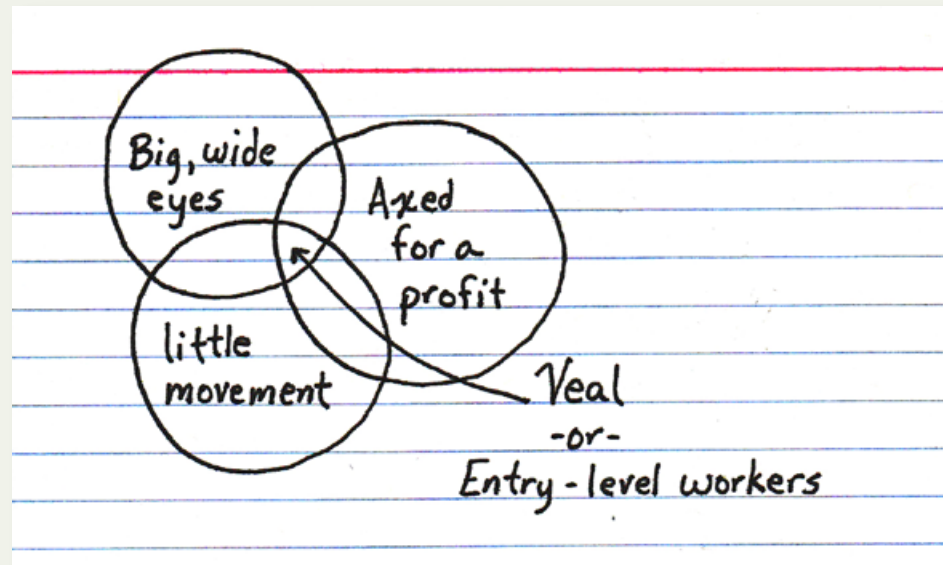 Big, wide
eyes
Axed
for a
profit
little
movement
Veal
-or-
Entry-level workers